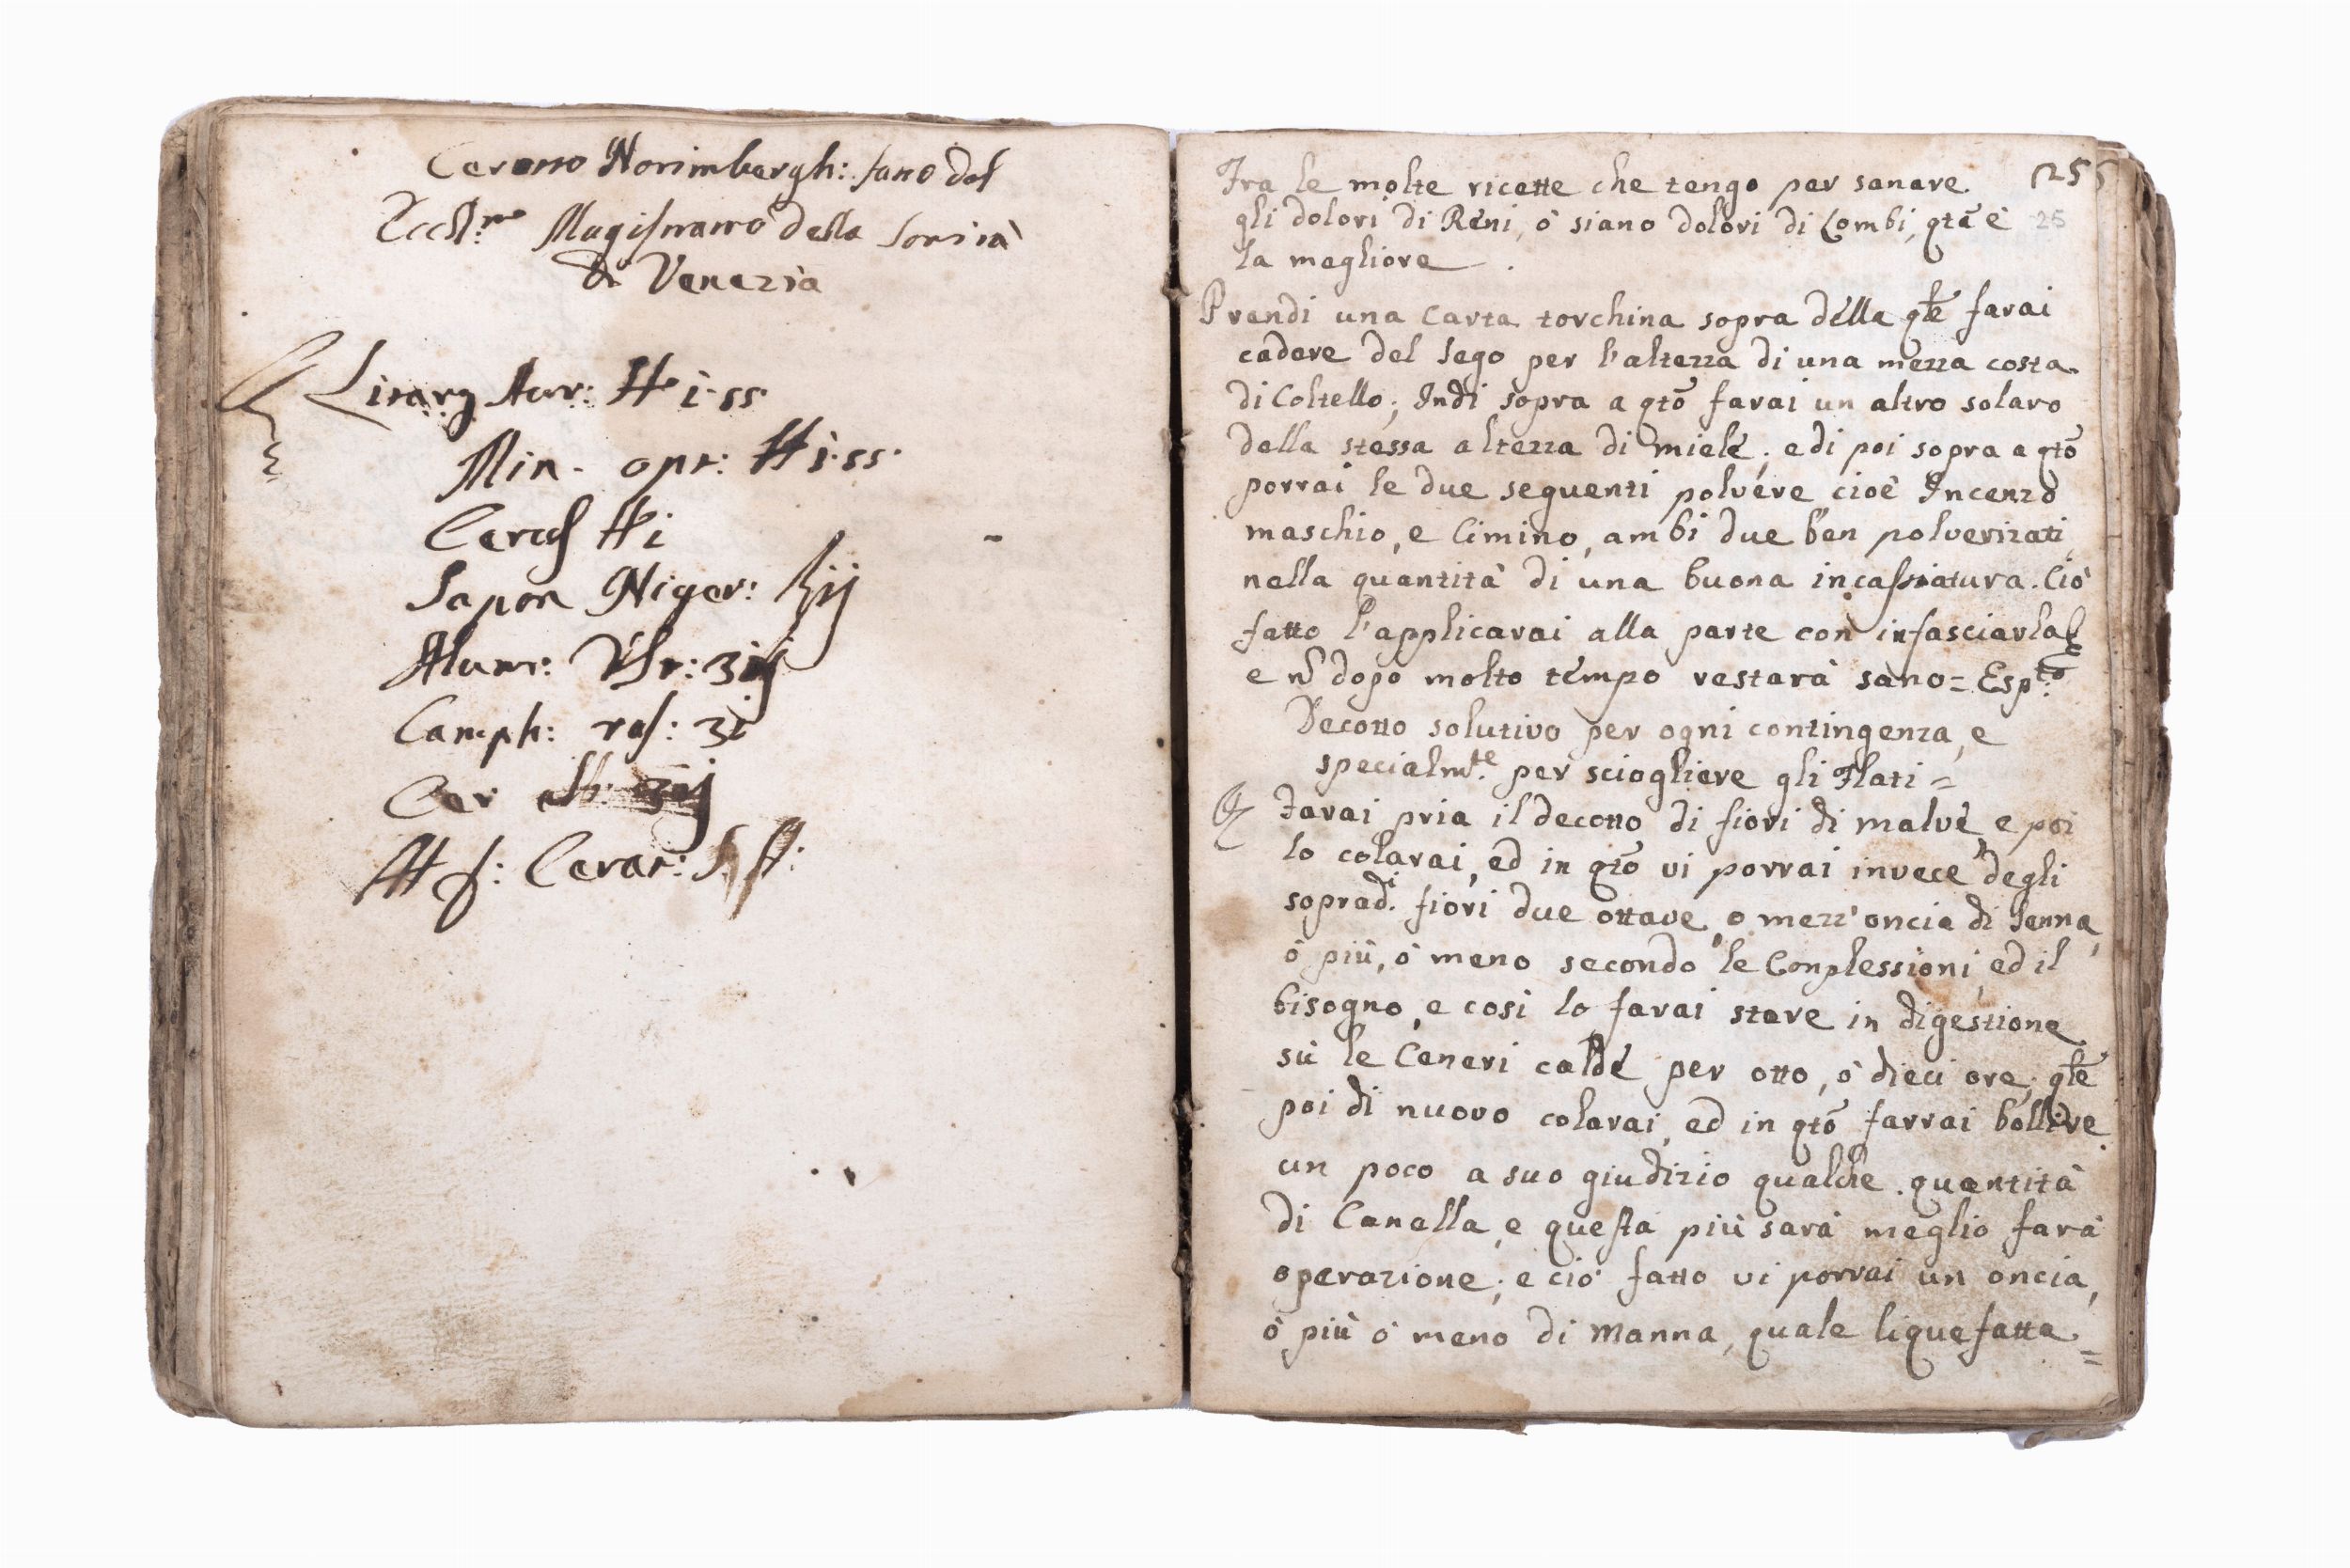 Ceroto Norimbergh: fatto dal
Eccell:mo Magistrato della Sanità
di Venezia
Litarg Aur: ℔ i·ss·
Min. opt: ℔ i·ss·
Ceruss ℔ i
Sapon Niger: ℥ij
Alum: Ust: ʒiij
Camph: ras: ʒi
Cer alb:
f: Cerat: S. A:
Fra le molte ricette che tengo per sanare 25
gli dolori di Reni, ò siano dolori di Lombi, qta è 25
la megliore.
Prendi una carta torchina sopra della qle farai
cadere del sego per l'altezza di una mezza costa
di Coltello; Indi sopra a qto farai un altro solaro
della stessa altezza di miele; e di poi sopra a qto
porrai le due seguenti polvere cioè Incenzo
maschio, e Cimino, ambi due ben polverizati
nella quantità di una buona incassiatura. Ciò
fatto l'applicarai alla parte con infasciarla
e n dopo molto tempo restarà sano = Espto:
Decotto solutivo per ogni contingenza, e
specialmte: per sciogliere gli Flati =
Farai pria il decotto di fiori di malve e poi
lo colarai, ed in qto vi porrai invece degli
sopradi. fiori due ottave, o mezz'oncia di Senna,
ò più, ò meno secondo le Conplessioni, ed il
bisogno, e così lo farai stare in digestione
sù le Ceneri calde per otto, ò dieci ore; qle
poi di nuovo colarai, ed in qto farrai bollire
un poco a suo giudizio qualche quantità
di Canella, e questa più sarà meglio farà
operazione; e ciò fatto vi porrai un oncia,
ò più ò meno di Manna, quale liquefatta =